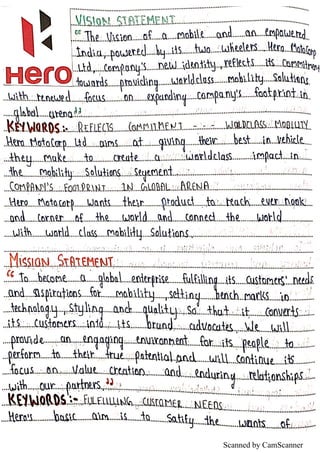 VISION STATEMENT
"The Vision of a mobile and an empowered
India, powered by its two wheelers Hero MotoCorp
Ltd, company's new identity, reflects its commitment
towards providing worldclass mobility solutions
with renewed focus on expanding company's footprint in
global arena"
Hero
KEYWORDS:- REFLECTS COMMITMENT - - - WORLDCLASS MOBILITY
Hero MotoCorp Ltd aims at giving their best in vehicle
they make to create a worldclass impact in
the mobility solutions seyement.
COMPANY'S FOOTPRINT IN GLOBAL ARENA
Hero Motocorp wants their product to reach ever nook
and corner of the world and connect the world
with world class mobility solutions.
MISSION STATEMENT
"To become a global enterprise fulfilling its customers' needs
and aspirations for mobility, setting bench marks in
technology, styling and quality so that it converts
its customers into its brand advocates, We will
provide an engaging environment for its people to
perform to their true potential and will continue its
focus on value creation and enduring relationships
with our partners."
KEYWORDS:- FULFILLING CUSTOMER NEEDS
Hero's basic aim is to satify the wants of
Scanned by CamScanner